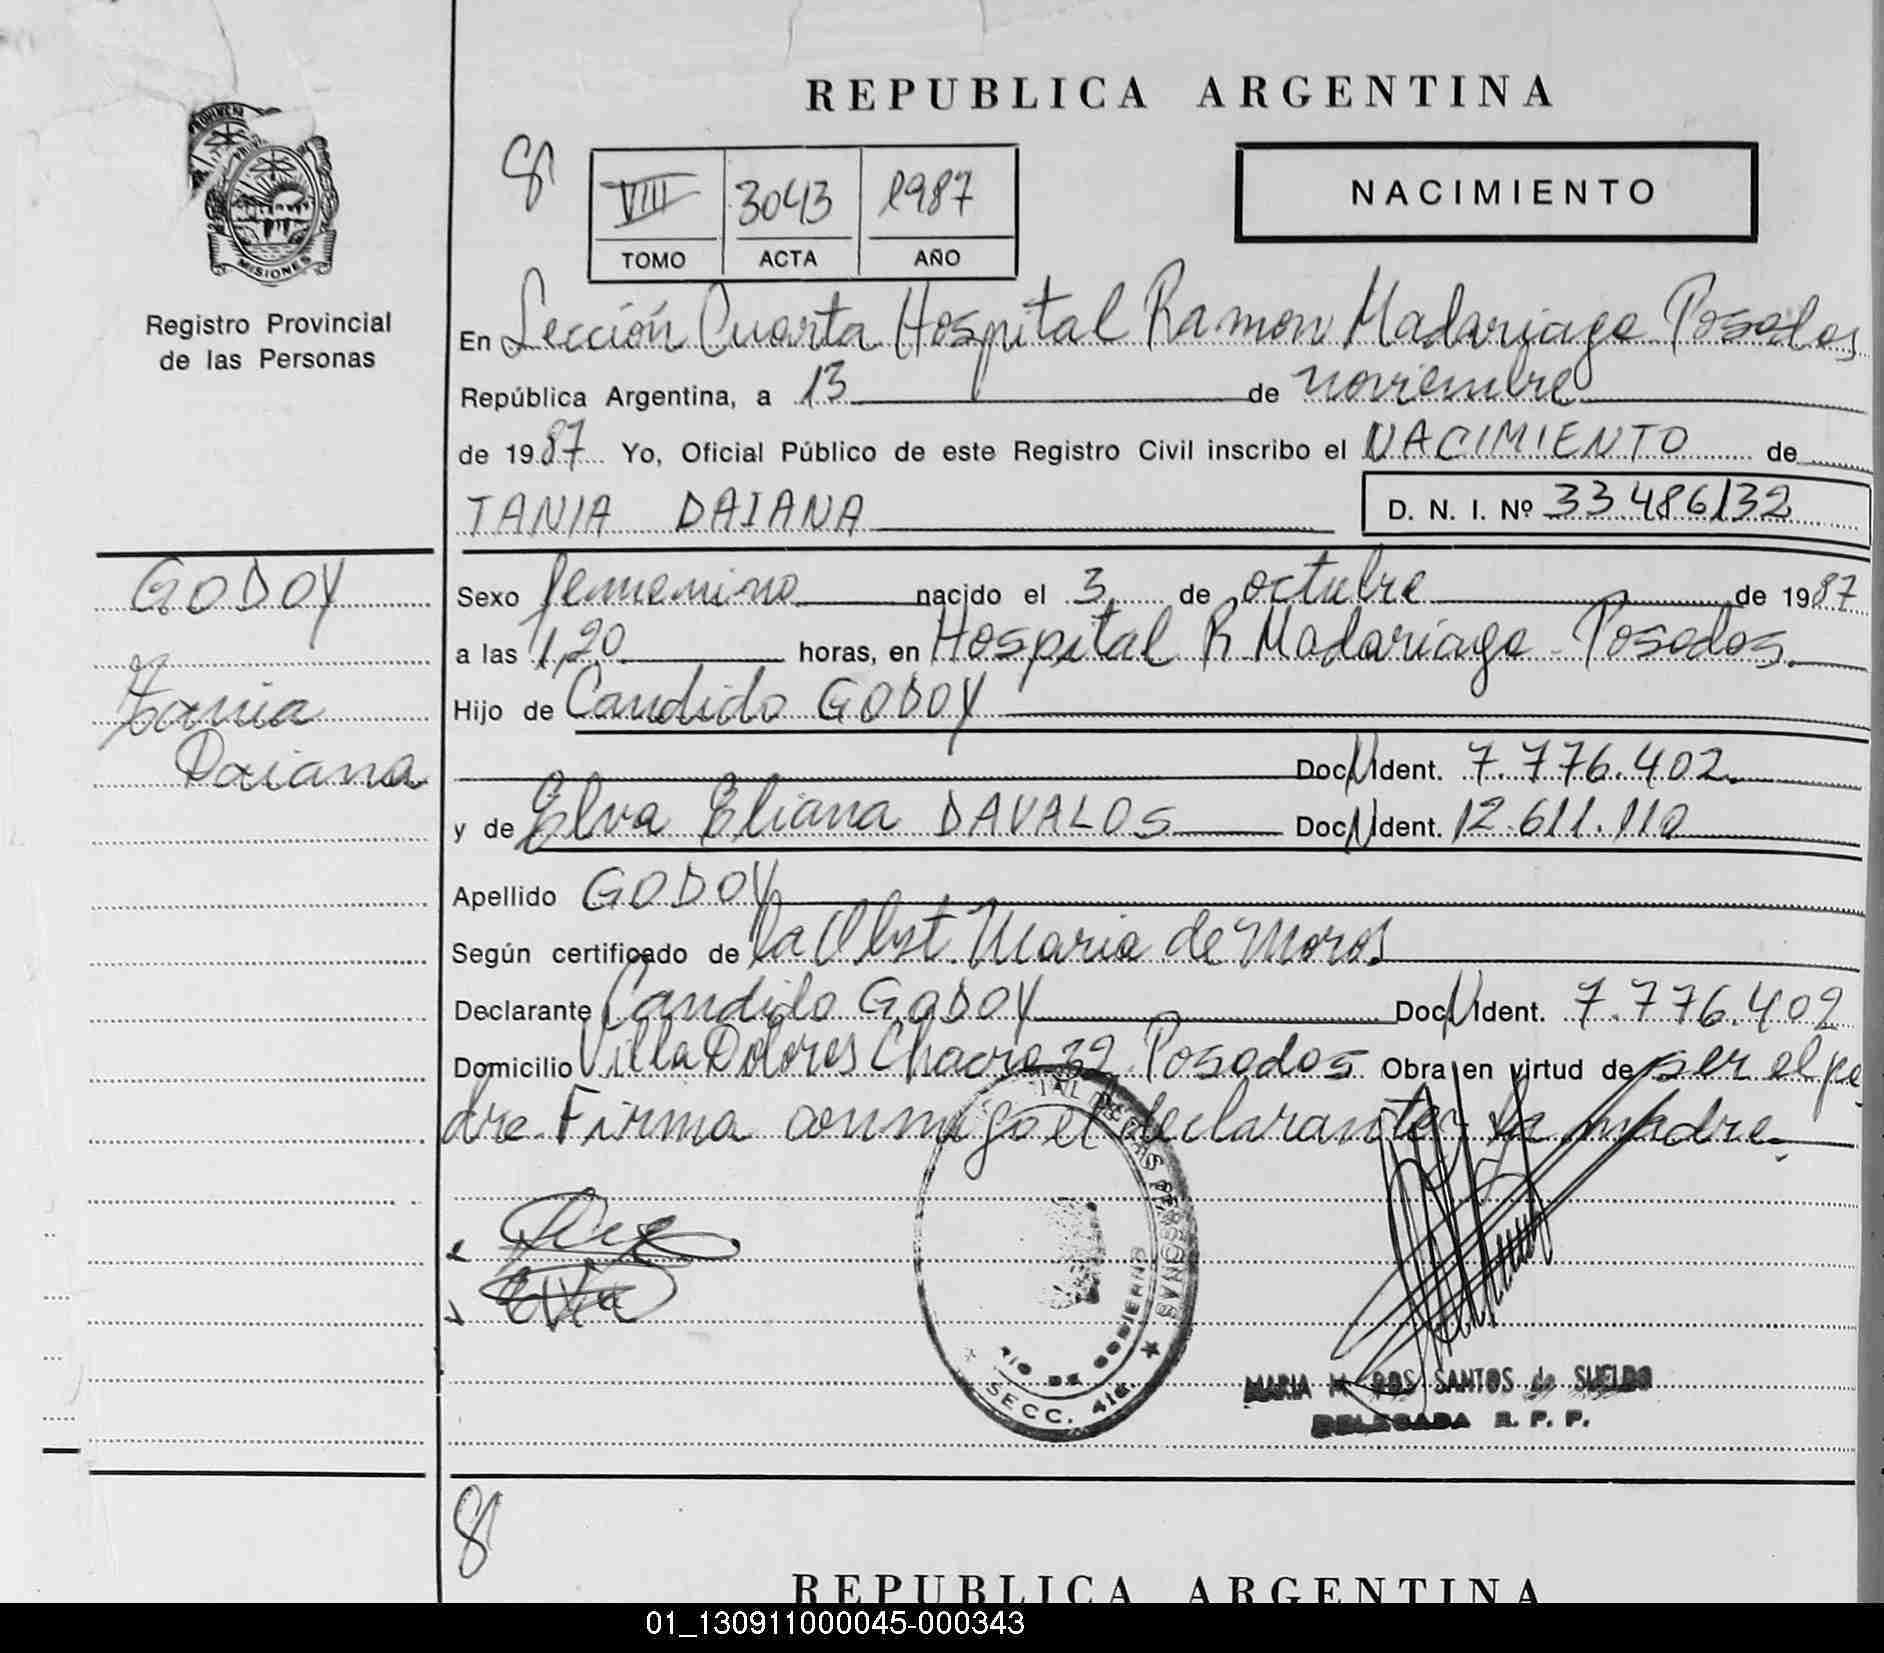 REPUBLICA ARGENTINA
8
VIII 3043 1987
TOMO ACTA AÑO
NACIMIENTO
MISIONES
Registro Provincial
de las Personas
En Sección Cuarta Hospital Ramon Madariaga Posadas
República Argentina, a 13 de noviembre
de 1987 Yo, Oficial Público de este Registro Civil inscribo el NACIMIENTO de
TANIA DAIANA D. N. I. Nº 33486132
GODOY
Tania
Daiana
Sexo femenino nacido el 3 de octubre de 1987
a las 1,20 horas, en Hospital R Madariaga Posadas.
Hijo de Candido GODOY
Doc N Ident. 7.776.402.
y de Elva Eliana DAVALOS Doc N Ident. 12.611.110
Apellido GODOY
Según certificado de la Obst. Maria de Moros
Declarante Candido GODOY Doc N Ident. 7.776.402
Domicilio Villa Dolores Chacra 32 Posadas Obra en virtud de ser el pa
dre. Firma conmigo el declarante y la madre.
SECC. 4ta.
MARIA M. DOS SANTOS de SUELDO
DELEGADA R. P. P.
8
REPUBLICA ARGENTINA
01_130911000045-000343